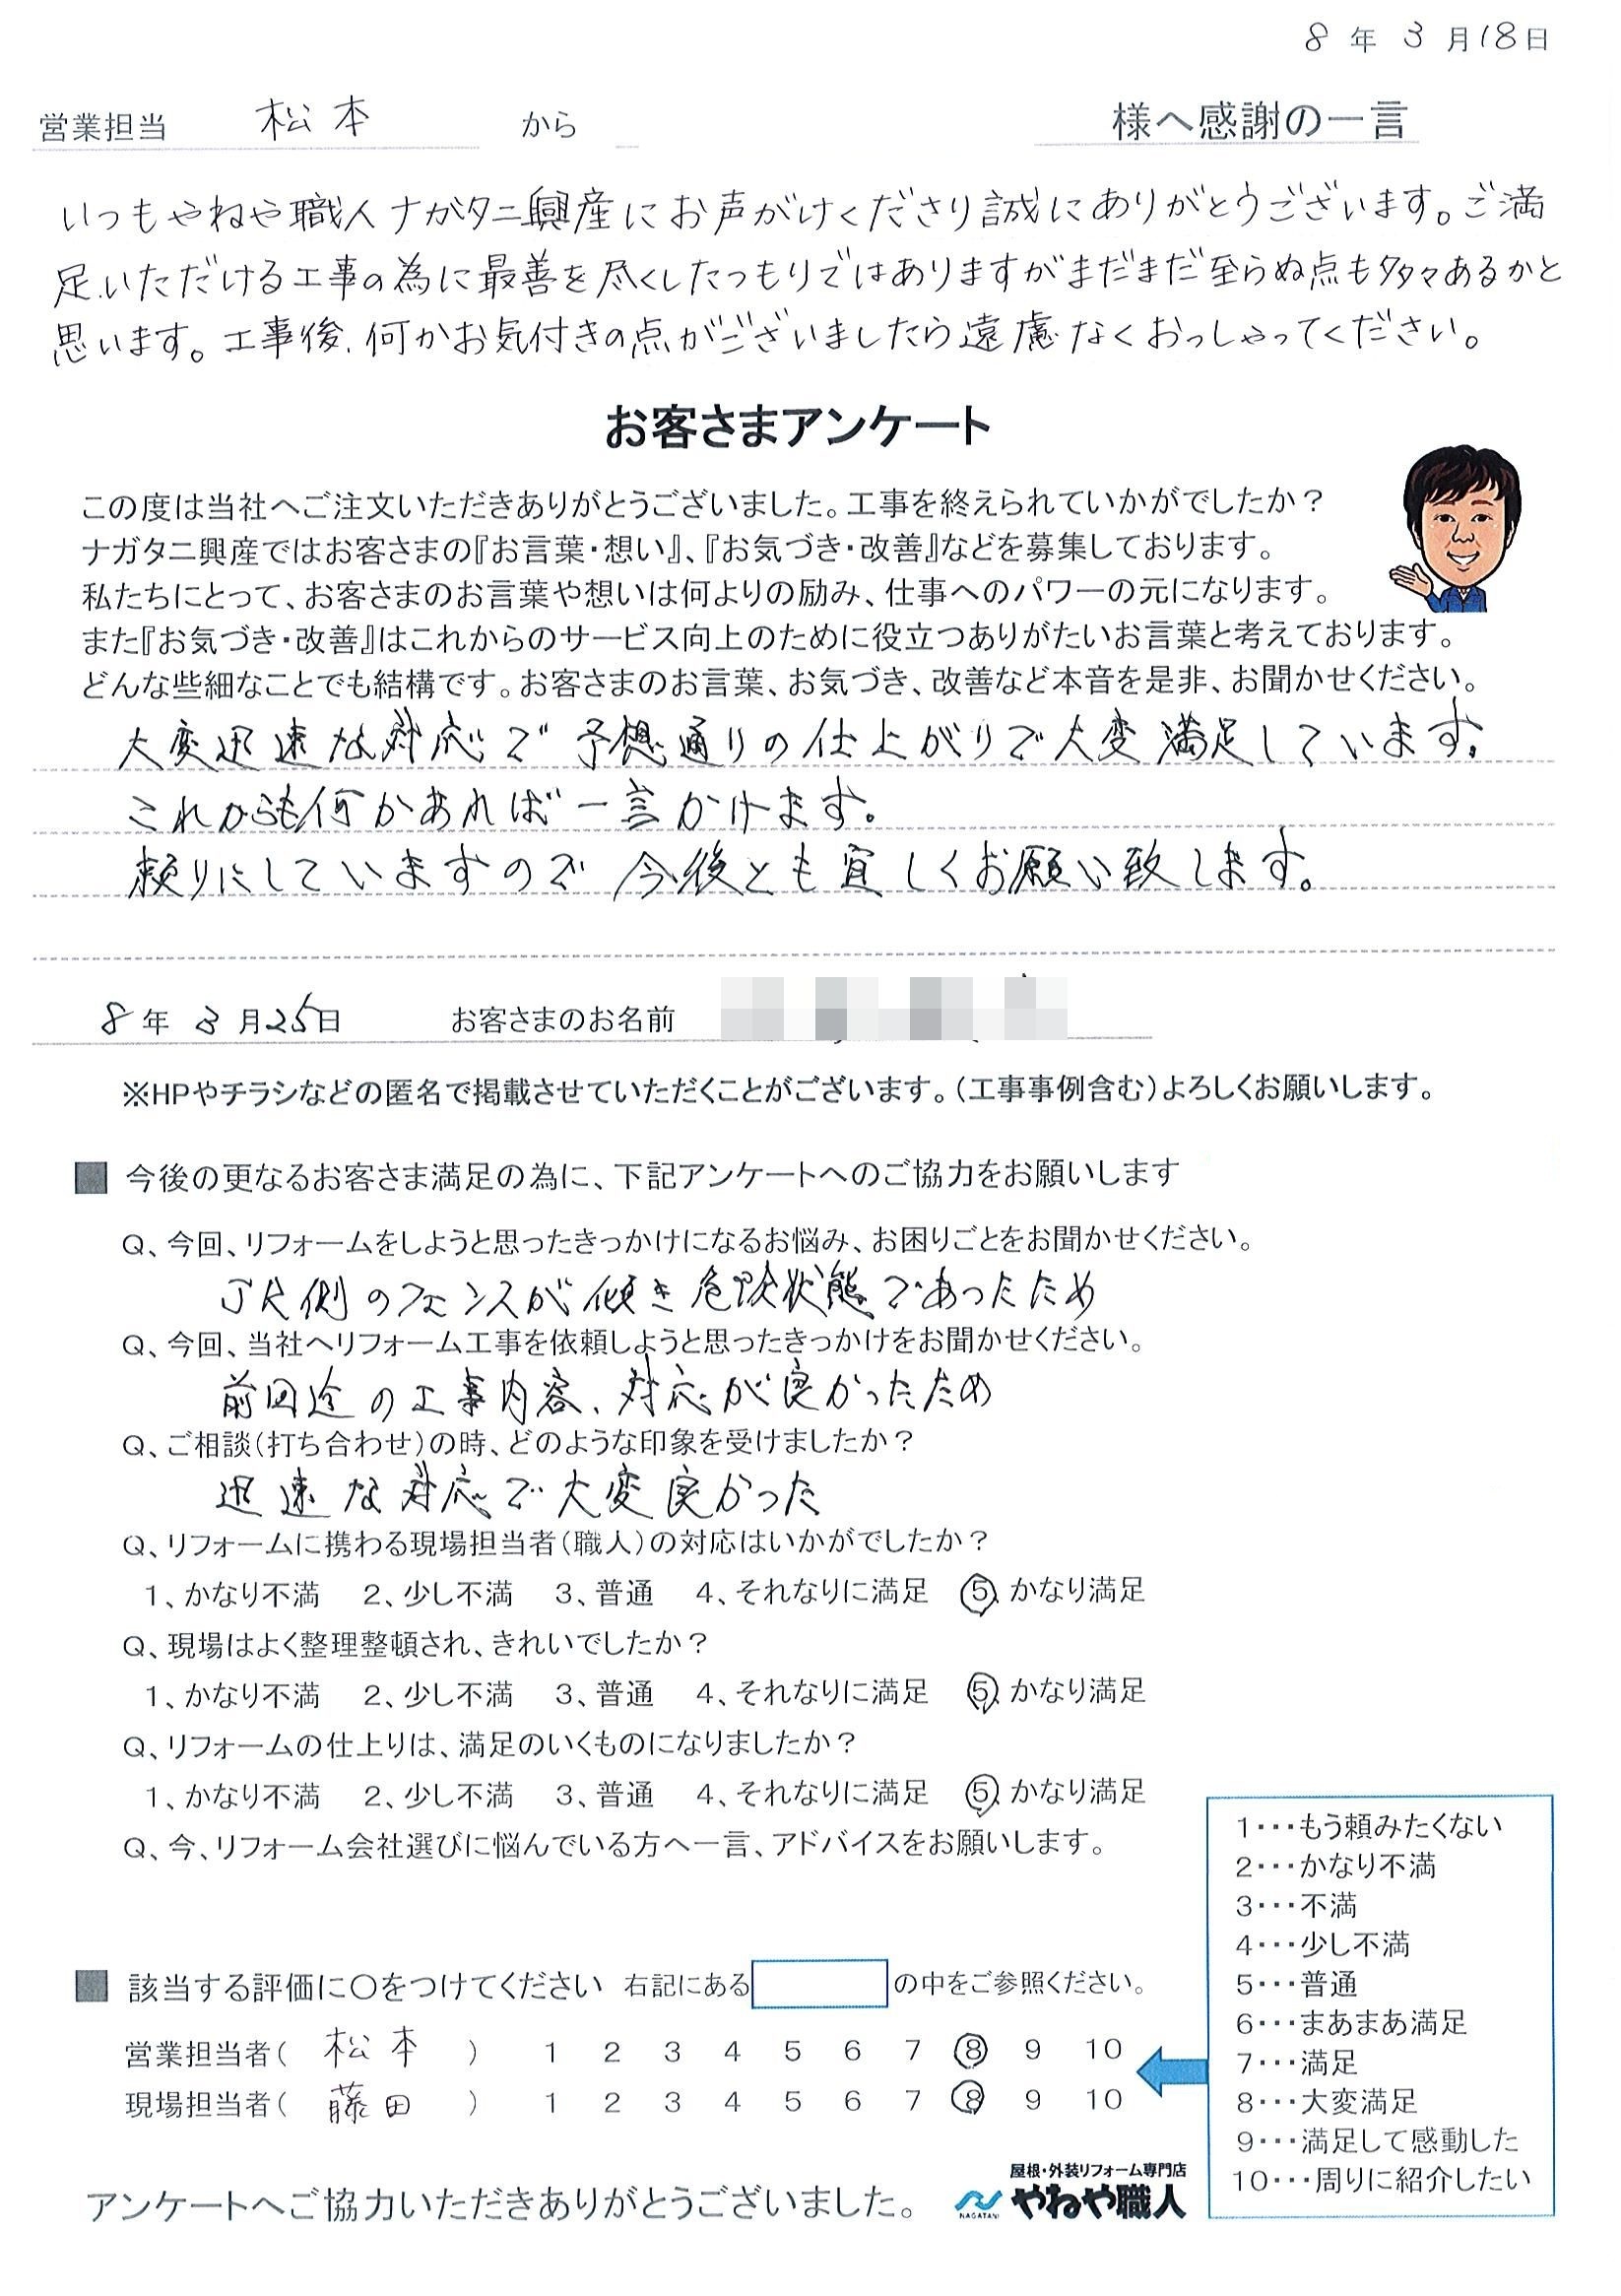 8 年 3 月 18 日
営業担当 松本 から 様へ感謝の一言
いつもやねや職人ナガタニ興産にお声がけくださり誠にありがとうございます。ご満
足いただける工事の為に最善を尽くしたつもりではありますがまだまだ至らぬ点も多々あるかと
思います。工事後、何かお気付きの点がございましたら遠慮なくおっしゃってください。
お客さまアンケート
この度は当社へご注文いただきありがとうございました。工事を終えられていかがでしたか？
ナガタニ興産ではお客さまの『お言葉・想い』、『お気づき・改善』などを募集しております。
私たちにとって、お客さまのお言葉や想いは何よりの励み、仕事へのパワーの元になります。
また『お気づき・改善』はこれからのサービス向上のために役立つありがたいお言葉と考えております。
どんな些細なことでも結構です。お客さまのお言葉、お気づき、改善など本音を是非、お聞かせください。
大変迅速な対応で予想通りの仕上がりで大変満足しています。
これからも何かあれば一言かけます。
頼りにしていますので今後とも宜しくお願い致します。
8 年 3 月 25 日 お客さまのお名前
※HPやチラシなどの匿名で掲載させていただくことがございます。（工事事例含む）よろしくお願いします。
■ 今後の更なるお客さま満足の為に、下記アンケートへのご協力をお願いします
Q、今回、リフォームをしようと思ったきっかけになるお悩み、お困りごとをお聞かせください。
JR側のフェンスが傾き危険状態であったため
Q、今回、当社へリフォーム工事を依頼しようと思ったきっかけをお聞かせください。
前回迄の工事内容、対応が良かったため
Q、ご相談（打ち合わせ）の時、どのような印象を受けましたか？
迅速な対応で大変良かった
Q、リフォームに携わる現場担当者（職人）の対応はいかがでしたか？
1、かなり不満 2、少し不満 3、普通 4、それなりに満足 5、かなり満足
Q、現場はよく整理整頓され、きれいでしたか？
1、かなり不満 2、少し不満 3、普通 4、それなりに満足 5、かなり満足
Q、リフォームの仕上りは、満足のいくものになりましたか？
1、かなり不満 2、少し不満 3、普通 4、それなりに満足 5、かなり満足
Q、今、リフォーム会社選びに悩んでいる方へ一言、アドバイスをお願いします。
■ 該当する評価に〇をつけてください 右記にある の中をご参照ください。
営業担当者（ 松本 ） 1 2 3 4 5 6 7 8 9 10
現場担当者（ 藤田 ） 1 2 3 4 5 6 7 8 9 10
1・・・もう頼みたくない
2・・・かなり不満
3・・・不満
4・・・少し不満
5・・・普通
6・・・まあまあ満足
7・・・満足
8・・・大変満足
9・・・満足して感動した
10・・・周りに紹介したい
アンケートへご協力いただきありがとうございました。
NAGATANI
屋根・外装リフォーム専門店
やねや職人